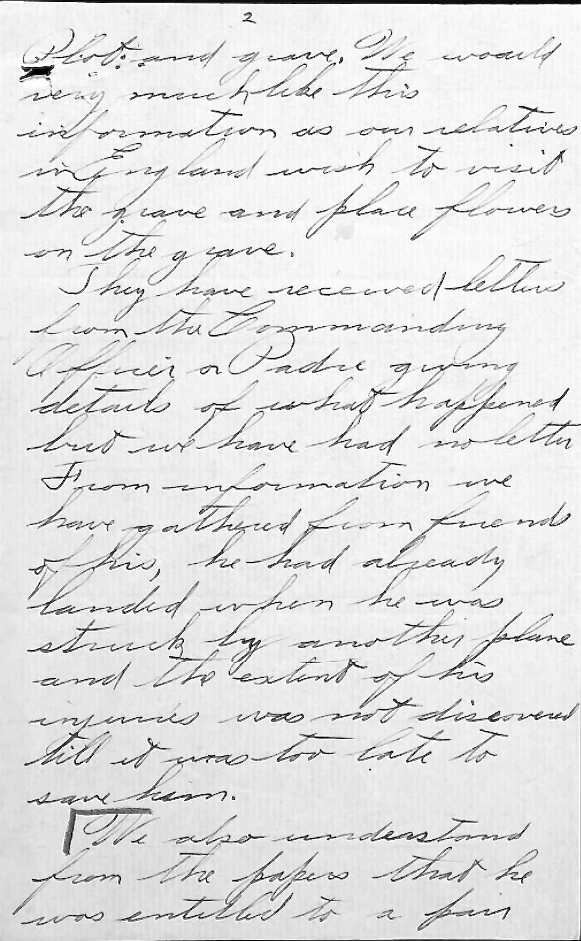 2
Plot: and grave. We would
very much like this
information as our relatives
in England wish to visit
the grave and place flowers
on the grave.
They have received letters
from the Commanding
Officer or Padre giving
details of what happened
but we have had no letter
From information we
have gathered from friends
of his, he had already
landed when he was
struck by another plane
and the extent of his
injuries was not discovered
till it was too late to
save him.
We also understand
from the papers that he
was entitled to a pair